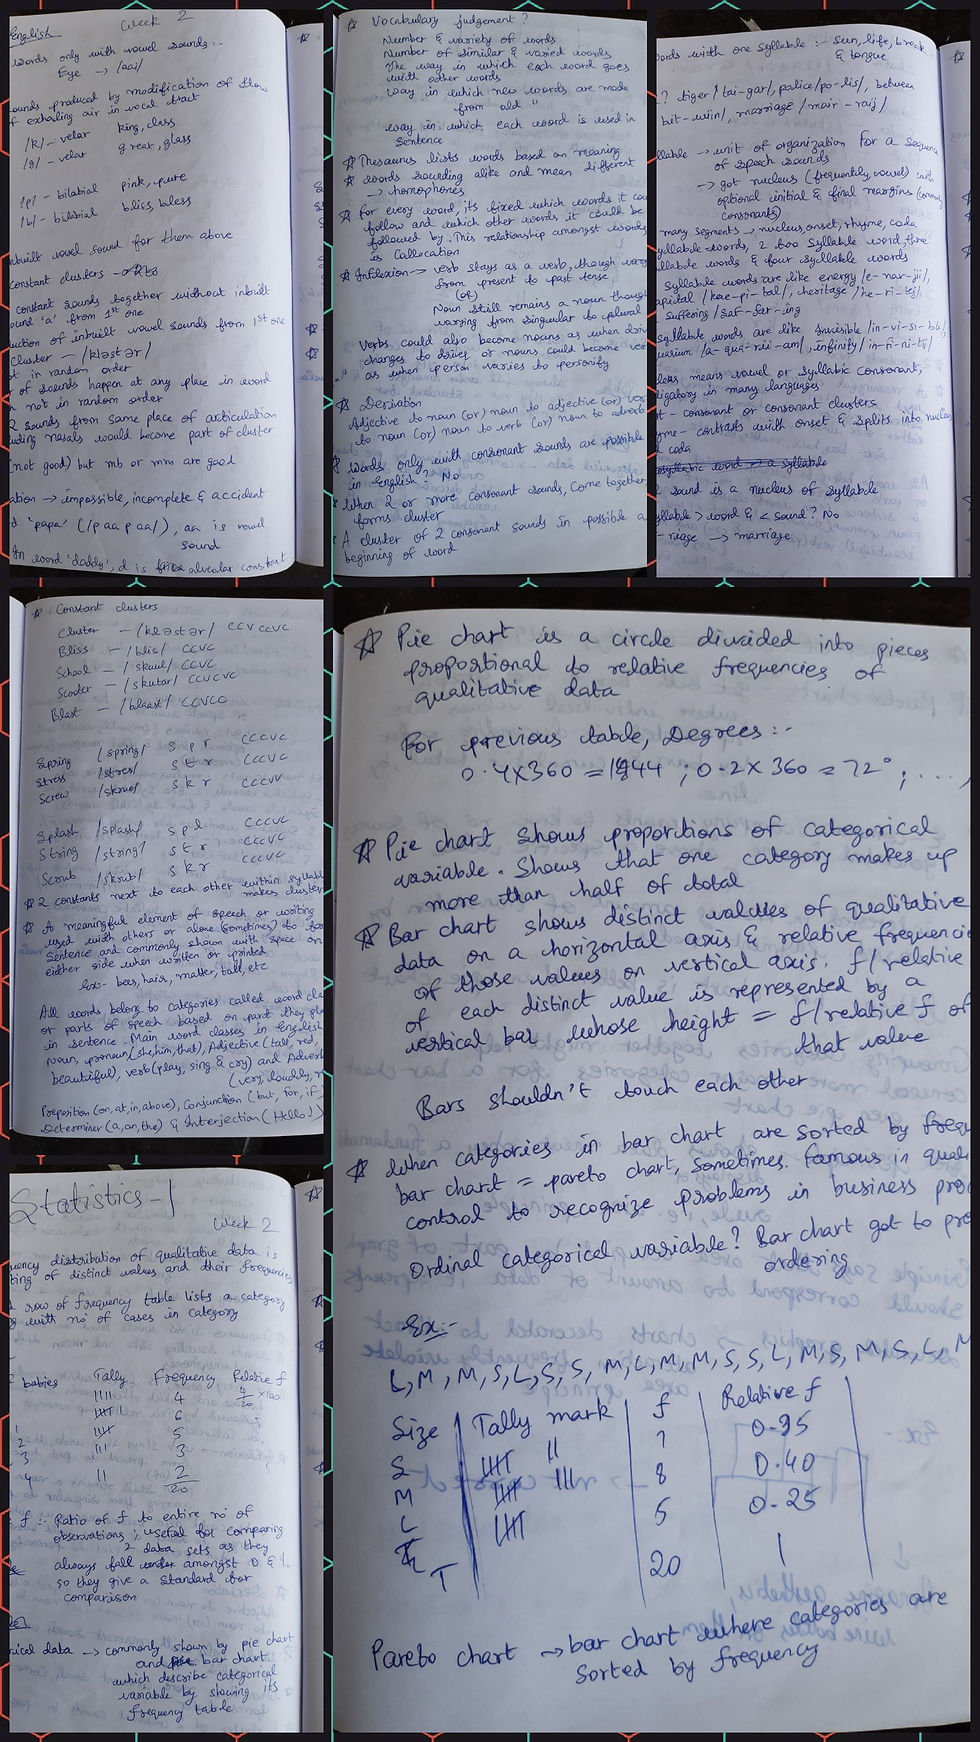 English Week 2
words only with vowel sounds :-
Eye → /aai/
sounds produced by modification of flow
of exhaling air in vocal tract
/k/ - velar king, class
/g/ - velar great, glass
/p/ - bilabial pink, pure
/b/ - bilabial bliss, bless
inbuilt vowel sound for them above
constant clusters -
constant sounds together without inbuilt
sound 'a' from 1st one
uction of inbuilt vowel sounds from 1st one
cluster - /kləstər/
in random order
of sounds happen at any place in word
not in random order
2 sounds from same place of articulation
uding nasals would become part of cluster
(not good) but mb or mm are good
ation → impossible, incomplete & accident
'papa' (/p aa p aa/), aa is vowel
sound
In word 'daddy', d is alveolar constnat
☆ Vocabulary judgement ?
Number & variety of words
Number of similar & varied words
The way in which each word goes
with other words
way in which new words are made
from old "
way in which each word is used in
sentence
☆ Thesaurus lists words based on meaning
☆ words sounding alike and mean different
→ homophones
☆ For every word, its fixed which words it cou
follow and which other words it could be
followed by. This relationship amongst words
is Callocation
☆ Inflexion → verb stays as a verb, though vary
from present to past tense
(or)
Noun still remains a noun though
varying from singular to plural
Verbs could also become nouns as when drive
changes to driver or nouns could become ver
as when person varies to personify
☆ Derivation
Adjective to noun (or) noun to adjective (or) ver
to noun (or) noun to verb (or) noun to adverb
☆ words only with consonant sounds are possible
in English? No
☆ When 2 or more consonant sounds, come together
forms cluster
☆ A cluster of 2 consonent sounds in possible a
beginning of word
words with one syllable :- Sun, life, break
& tongue
? tiger / tai-gar/, police/po-lis/, between
bit-wiin/, marriage /mair-raij/
llable → unit of organization for a sequence
of speech sounds
→ got nucleus (frequently, vowel) with
optional initial & final margins (commonly
consonants)
many segments → nucleus, onset, rhyme, coda
syllable words, 2 syllable word, three
llable words & four syllable words
Syllable words are like energy /e-nar-jii/,
apital /kae-pi-tal/, heritage /he-ri-tej/
suffering /saf-far-ing
syllable words are like invisible /in-vi-si-bl/,
uarium /a-qua-rii-am/, infinity/ in-fi-ni-tii/
leus means vowel or syllabic consonant,
ligatory in many languages
t - consonant or consonant clusters
yme - contrasts with onset & splits into nucleus
coda
syllabic word → a syllable
sound is a nucleus of syllable
yllable > word & < sound ? No
- riage → marriage
☆ Constant clusters
Cluster - /kləstər/ CCVCCVC
Bliss - /blis/ CCVC
School - / skuul/ CCVC
Scooter - / skutar/ CCVCVC
Blast - /blaast/ CCVCC
Spring /spring/ s p r CCCVC
Stress /stres/ s t r CCCVC
Screw /skruo/ s k r CCCVV
Splash /splash/ s p l CCCVC
String /string/ s t r CCCVC
Scrub /skrub/ s k r CCCVC
☆ 2 constants next to each other within syllabl
makes cluster
☆ A meaningful element of speech or writing
used with others or alone (sometimes) to for
sentence and commonly shown with space on
either side when written or printed
Ex:- bas, hair, matter, tall, etc
All words belong to categories called word cla
or parts of speech based on part they pla
in sentence. Main word classes in English
noun, pronoun (she, him, that), Adjective (tall, red,
beautiful), verb (play, sing & cry) and Adverb
(very, loudly, n
Preposition (on, at, in, above), Conjunction (but, for, if)
Determiner (a, an, the) & Interjection (Hello!)
☆ Pie chart is a circle divided into pieces
proportional to relative frequencies of
qualitative data
For previous table, Degrees :-
0.4x360 = 144 ; 0.2x 360 = 72° ; ....,
☆ Pie chart shows proportions of categorical
variable. Shows that one category makes up
more than half of total
☆ Bar chart shows distinct values of qualitative
data on a horizontal axis & relative frequencie
of those values on vertical axis. f/relative
of each distinct value is represented by a
vertical bar whose height = f/relative f of
that value
Bars shouldn't touch each other
☆ When categories in bar chart are sorted by frequ
bar chart = pareto chart, sometimes. Famous in quali
control to recognize problems in business proc
Ordinal categorical variable? Bar chart got to pre
ordering
Ex:-
L, M, M, S, L, S, S, M, L, M, M, S, S, L, M, S, M, S, L, M
Size Tally mark f Relative f
S 7 0.35
M 8 0.40
L 5 0.25
T 20 1
Pareto chart → bar chart where categories are
sorted by frequency
Statistics - 1
Week 2
uency distribution of qualitative data is
ting of distinct values and their frequencies
row of frequency table lists a category
g with no. of cases in category
babies Tally Frequency Relative f
4 4/20 x100
6
1 5
2
3 3
4 2
20
f :- Ratio of f to entire no. of
observations ; useful for comparing
2 data sets as they
always fall amongst 0 & 1.
so they give a standard for
comparison
rical data → commonly shown by pie chart
and bar chart
which describe categorical
variable by showing its
frequency table